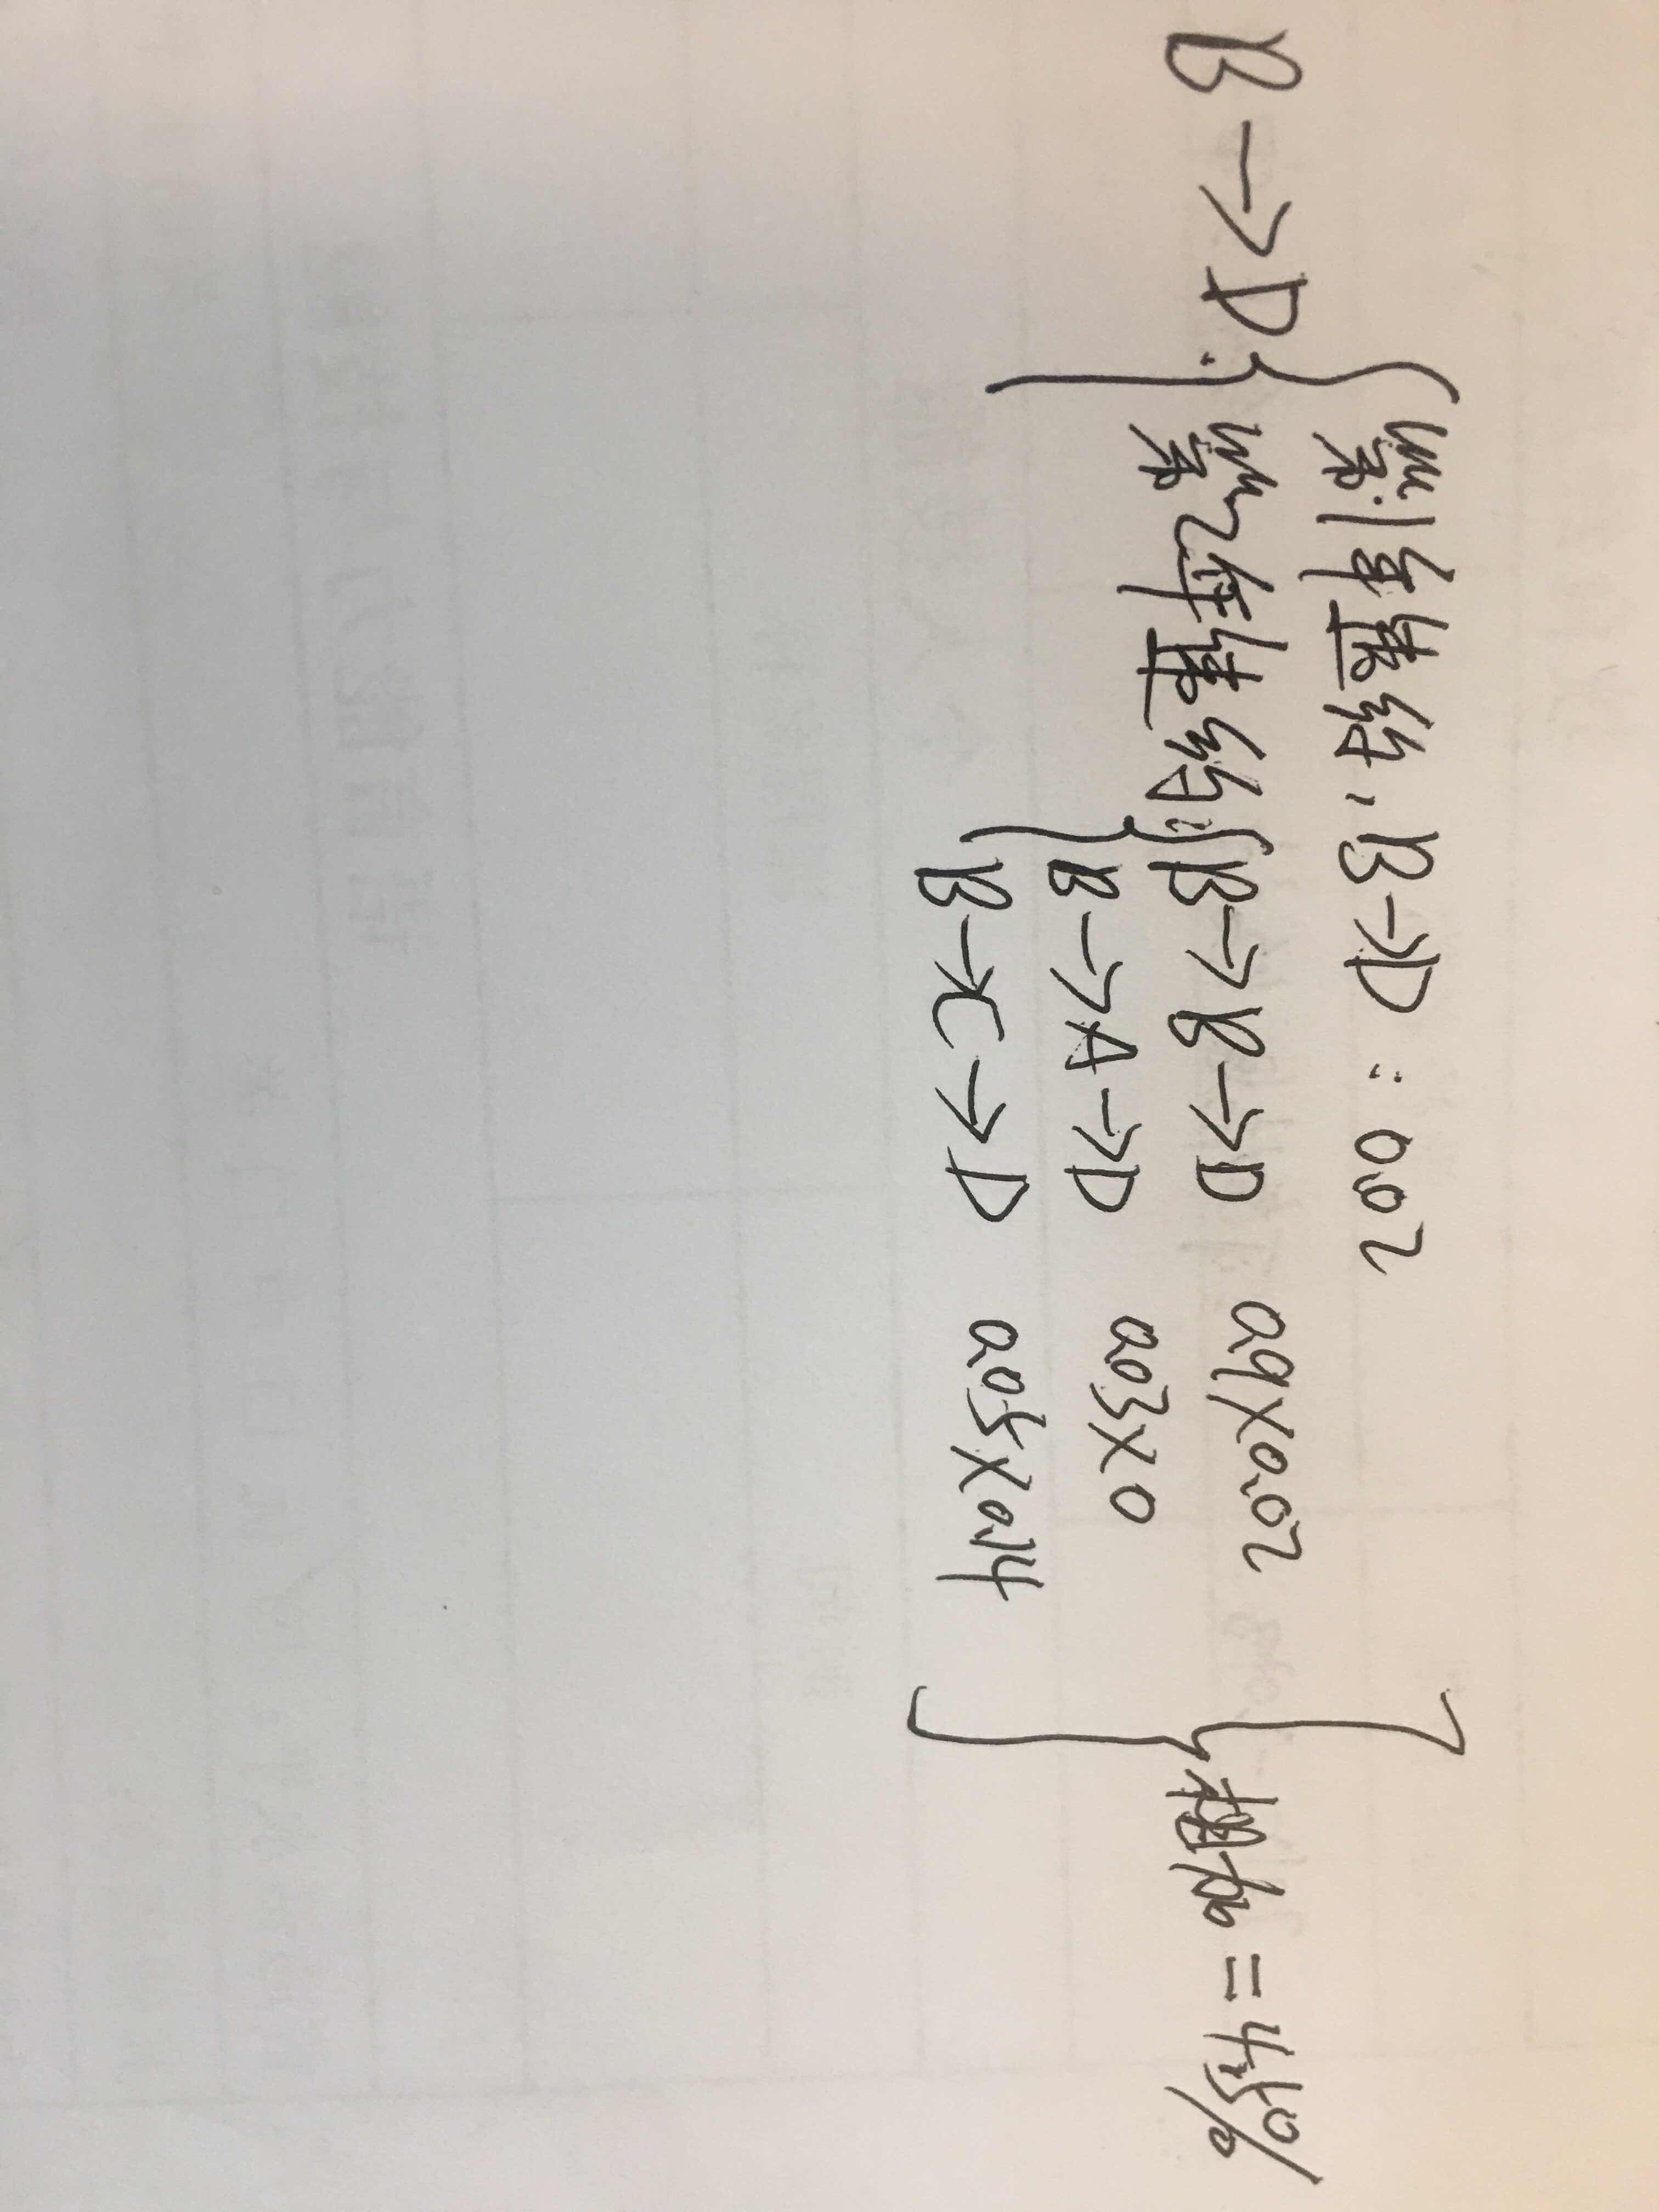 B→D:
第1年違约, B→D: 0.02
第2年違约: B→B→D 0.9×0.02
B→A→D 0.03×0
B→C→D 0.05×0.14
相加 = 4.5%